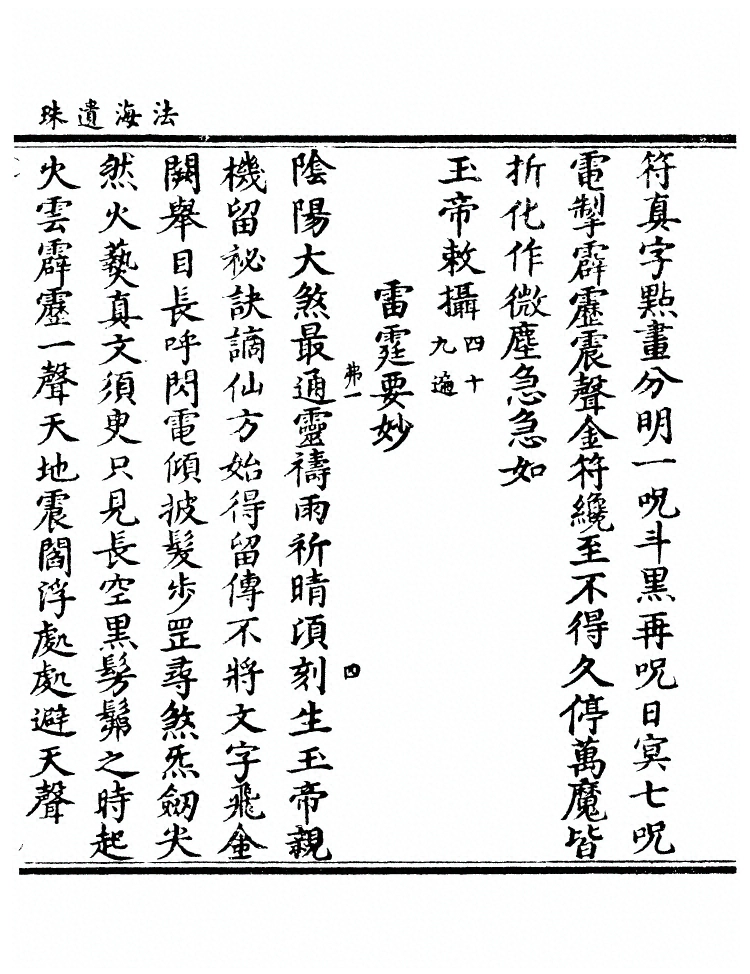 法海遺珠
符真字點畫分明一呪斗黑再呪日冥七呪
電掣霹靂震聲金符纔至不得久停萬魔皆
折化作微塵急急如
玉帝敕攝四十九遍
雷霆要妙
弗一
四
陰陽大煞最通靈禱雨祈晴頃刻生玉帝親
機留祕訣謫仙方始得留傳不將文字飛金
闕舉目長呼閃電傾披髮步罡尋煞炁劒尖
然火爇真文須臾只見長空黑髣髴之時起
火雲霹靂一聲天地震閻浮處處避天聲